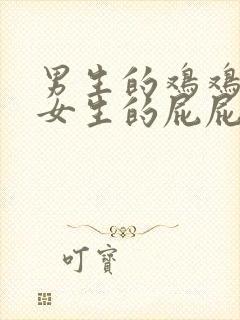 男生的鸡鸡
女生的屁屁
叮寶